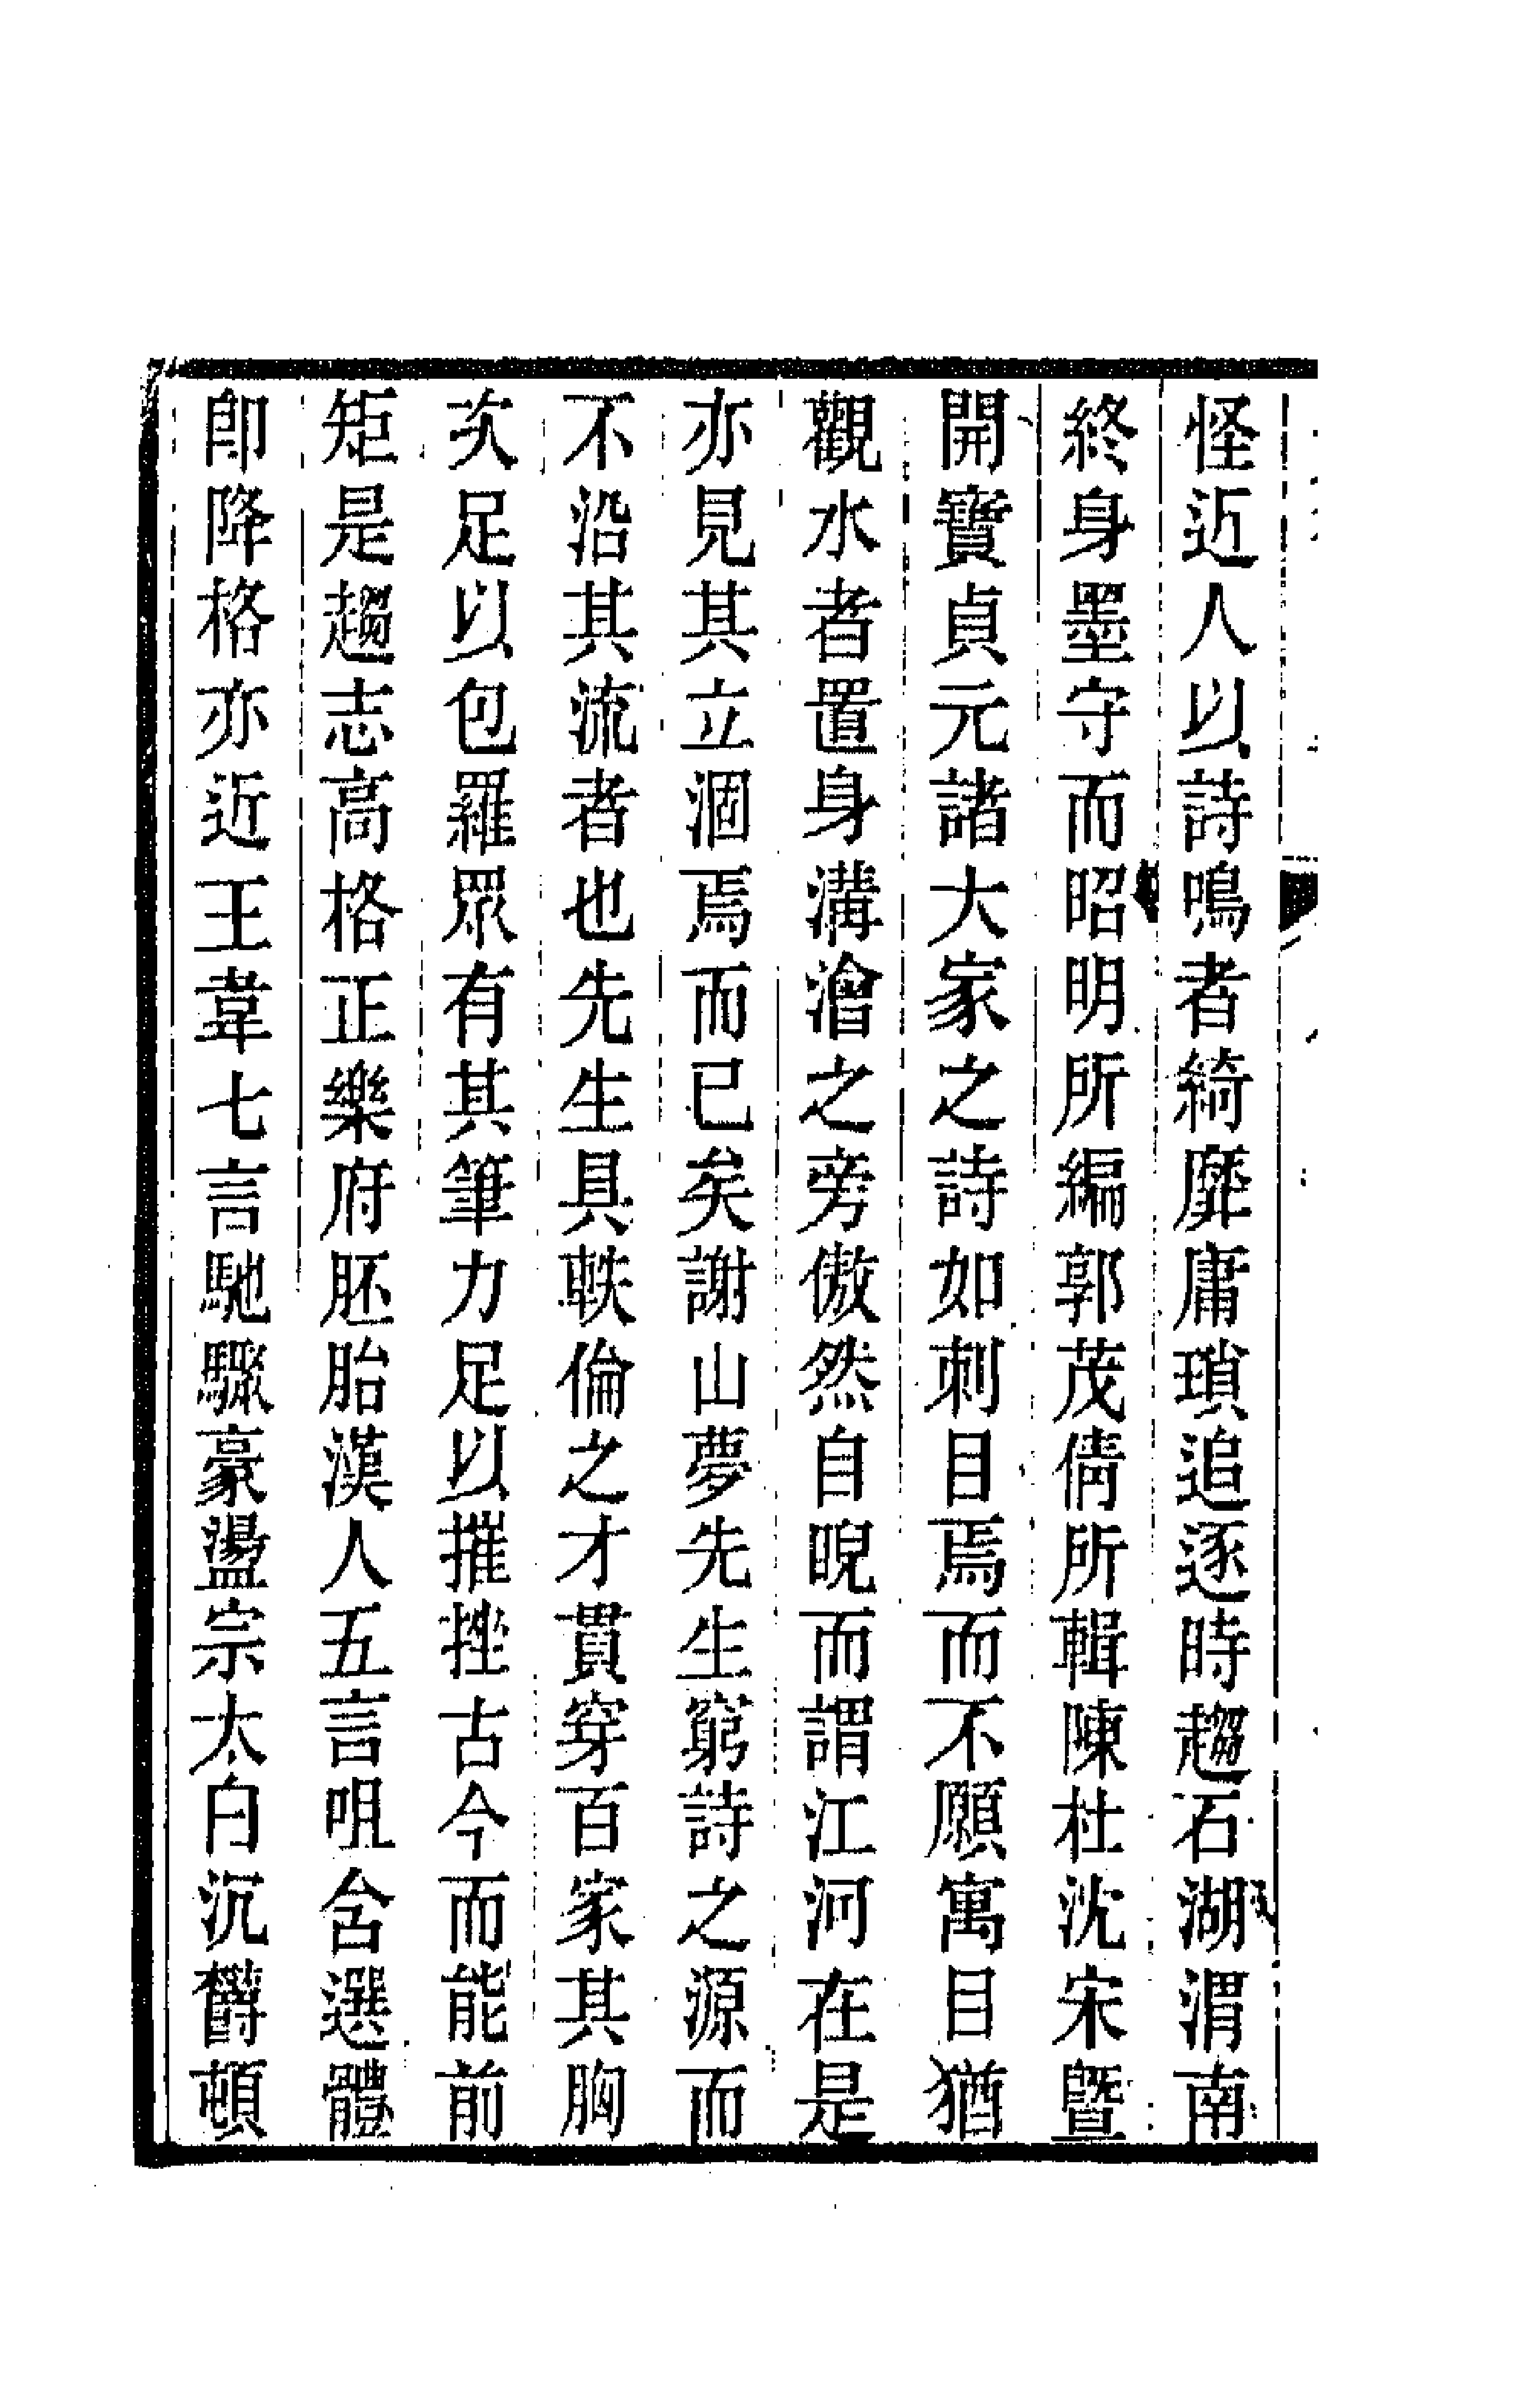 怪近人以詩鳴者綺靡庸瑣追逐時趨石湖渭南
終身墨守而昭明所編郭茂倩所輯陳杜沈宋曁
開寶貞元諸大家之詩如刺目焉而不願寓目猶
觀水者置身溝澮之旁傲然自睨而謂江河在是
亦見其立涸焉而已矣謝山夢先生窮詩之源而
不沿其流者也先生具軼倫之才貫穿百家其胸
次足以包羅眾有其筆力足以摧挫古今而能前
矩是趨志高格正樂府胚胎漢人五言咀含選體
卽降格亦近王韋七言馳驟豪盪宗太白沉鬱頓